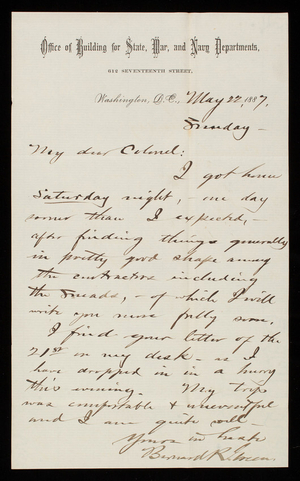 Office of Building for State, War, and Navy Departments,
612 SEVENTEENTH STREET,
Washington, D.C., May 22, 1887,
Sunday —
My dear Colonel:
I got home
Saturday night, — one day
sooner than I expected, —
after finding things generally
in pretty good shape among
the contractors including
the — of which I will
write you more fully soon.
I find your letter of the
21st on my desk — as I
have dropped in in a hurry
this evening. My trip
was comfortable & uneventful
and I am quite well —
Yours in haste
Bernard R. Green